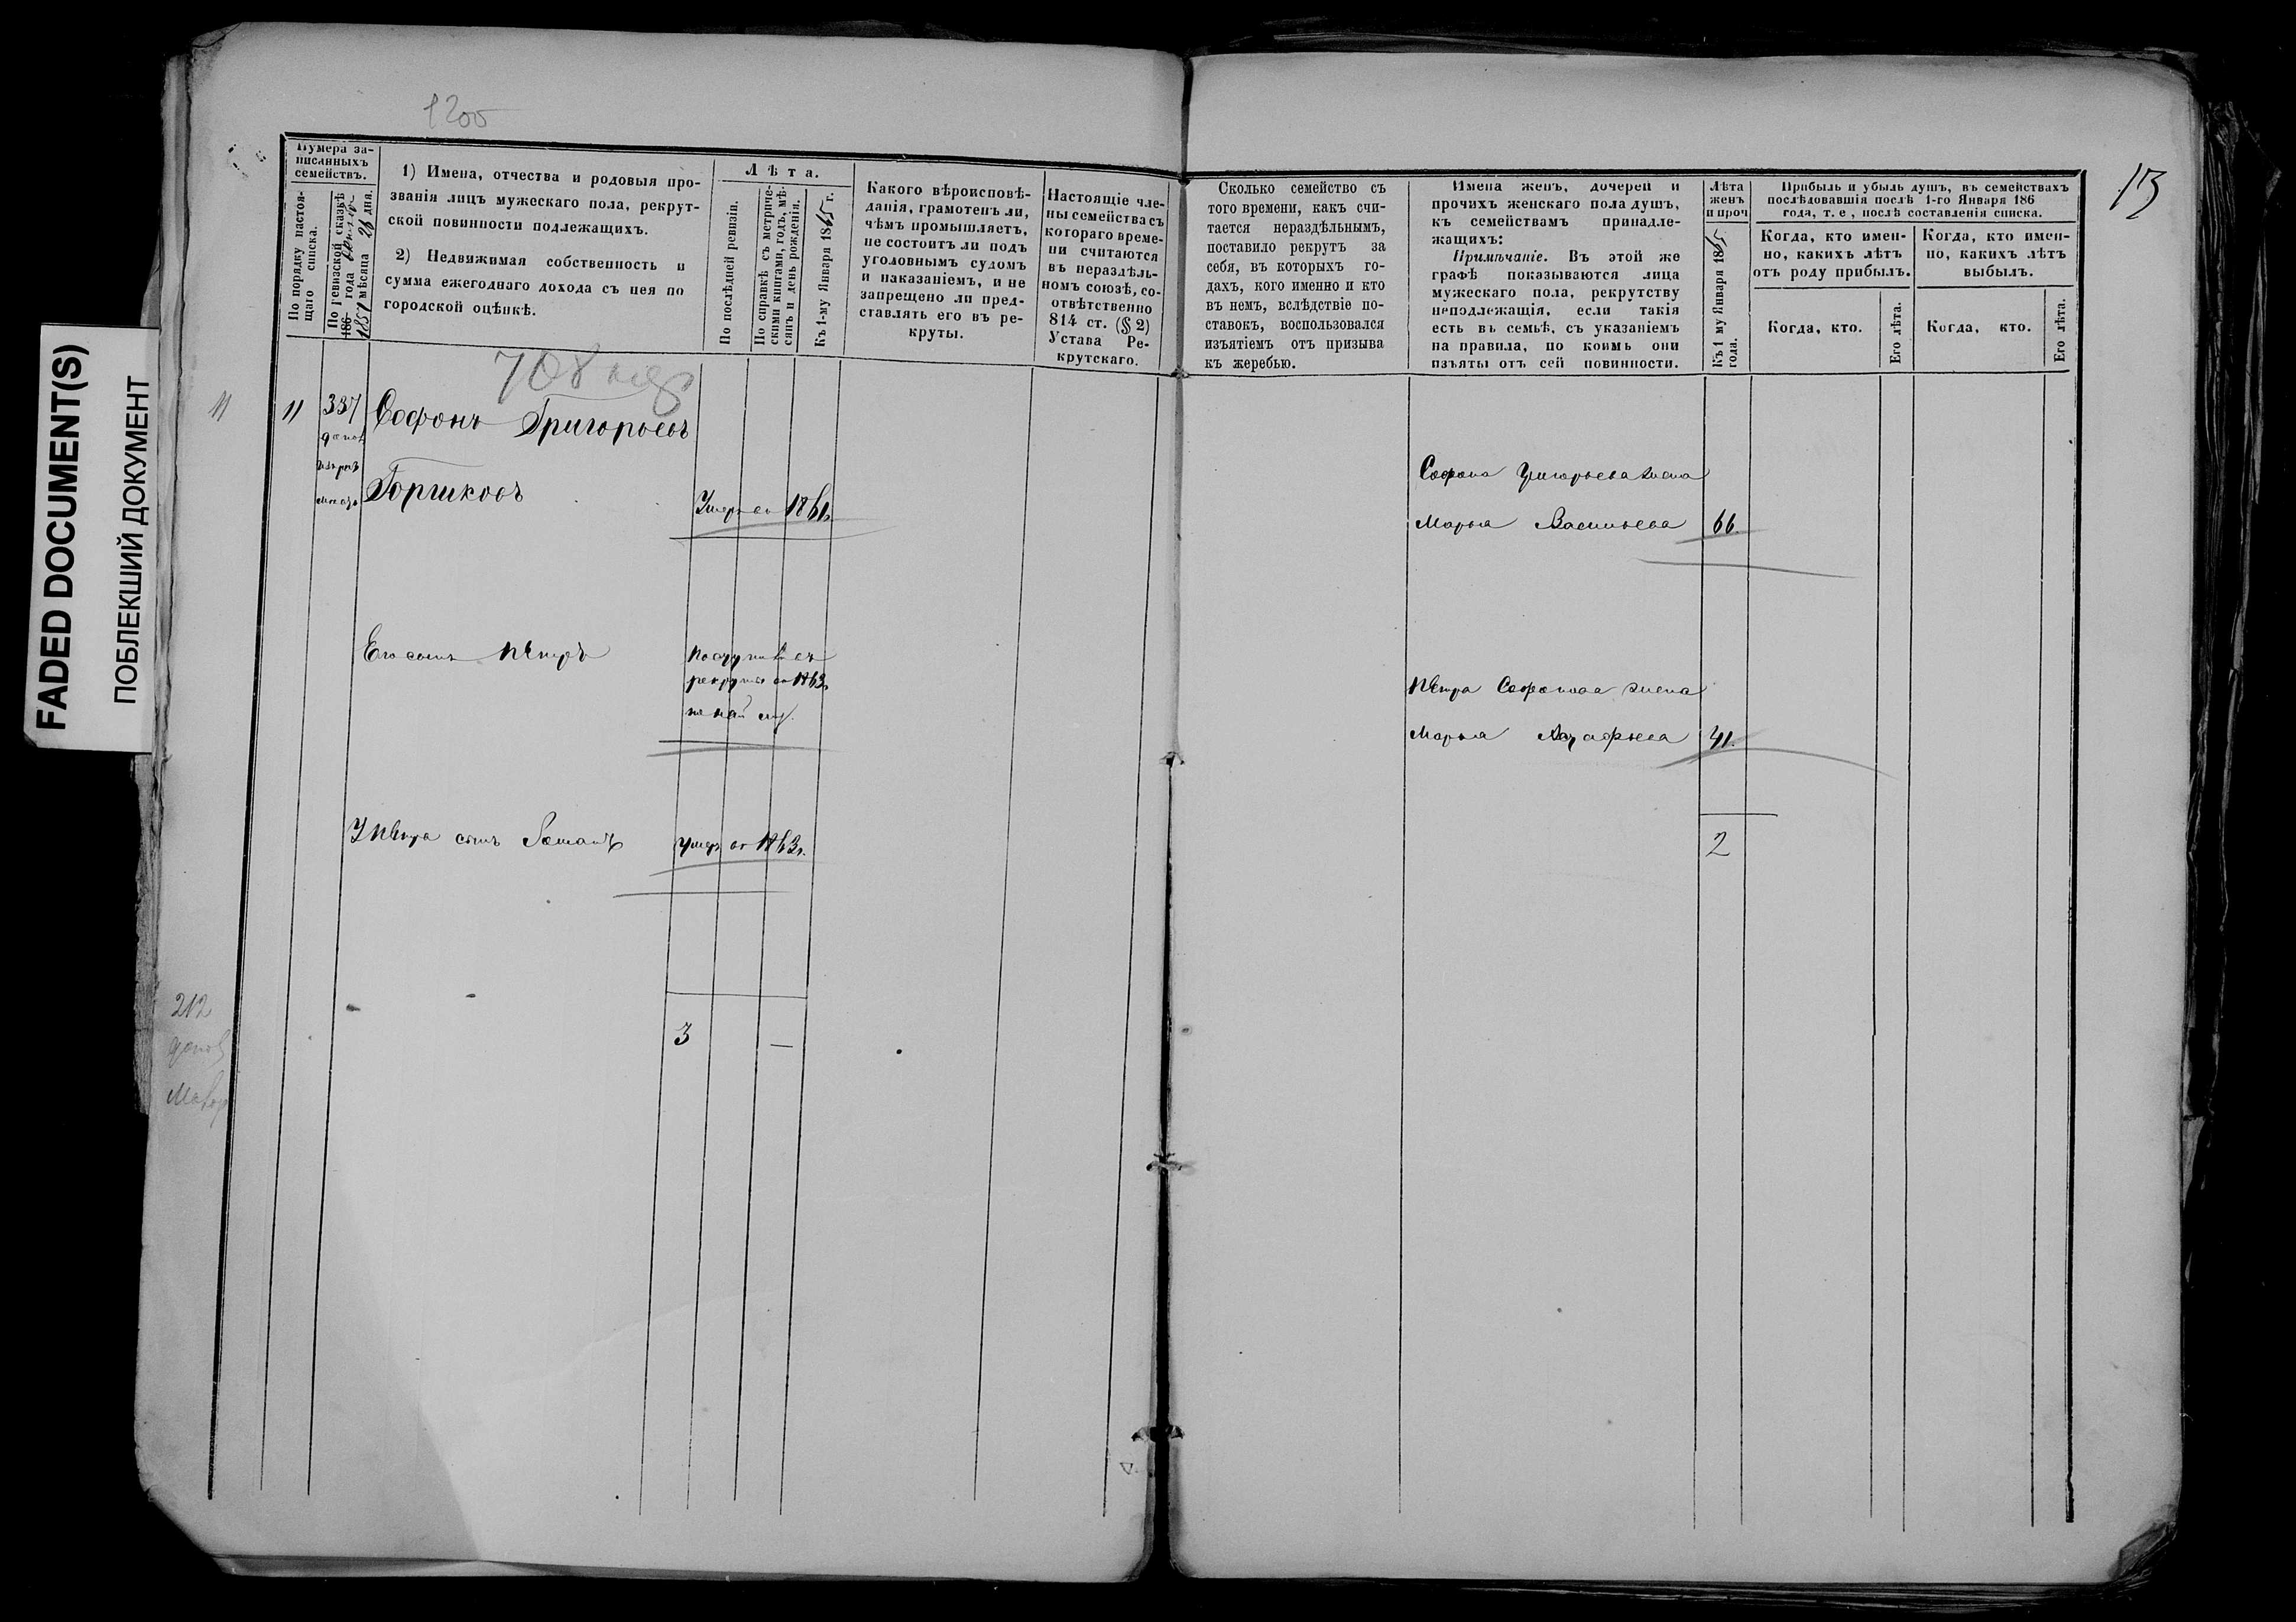 FADED DOCUMENT(S)
ПОБЛЕКШИЙ ДОКУМЕНТ
1200
Нумера за-
писанныхъ
семействъ.
По порядку настоя-
щаго списка.
По ревизской сказкѣ
186 года
1857 мѣсяца 26 дня.
1) Имена, отчества и родовыя про-
званія лицъ мужескаго пола, рекрут-
ской повинности подлежащихъ.
2) Недвижимая собственность и
сумма ежегоднаго дохода съ нея по
городской оцѣнкѣ.
Лѣта.
По послѣдней ревизіи.
По справкѣ съ метриче-
скими книгами, годъ, мѣ-
сяцъ и день рожденія.
Къ 1-му Января 1865 г.
Какого вѣроисповѣ-
данія, грамотенъ ли,
чѣмъ промышляетъ,
не состоитъ ли подъ
уголовнымъ судомъ
и наказаніемъ, и не
запрещено ли пред-
ставлять его въ ре-
круты.
Настоящіе чле-
ны семейства съ
котораго време-
ни считаются
въ нераздѣль-
номъ союзѣ, со-
отвѣтственно
814 ст. (§ 2)
Устава Ре-
крутскаго.
708
11
11
337
Софонъ Григорьевъ
Горшковъ
Умеръ въ 1861г.
Его сынъ Петръ
Поступилъ въ
рекруты въ 1863г.
У Петра сынъ
умеръ въ 1863г.
3
—
212
13
Сколько семейство съ
того времени, какъ счи-
тается нераздѣльнымъ,
поставило рекрутъ за
себя, въ которыхъ го-
дахъ, кого именно и кто
въ немъ, вслѣдствіе по-
ставокъ, воспользовался
изъятіемъ отъ призыва
къ жеребью.
Имена женъ, дочерей и
прочихъ женскаго пола душъ,
къ семействамъ принадле-
жащихъ:
Примѣчаніе. Въ этой же
графѣ показываются лица
мужескаго пола, рекрутству
неподлежащія, если такія
есть въ семьѣ, съ указаніемъ
на правила, по коимъ они
изъяты отъ сей повинности.
Лѣта
женъ
и проч
Къ 1 му Января 1865
года.
Прибыль и убыль душъ, въ семействахъ
послѣдовавшія послѣ 1-го Января 186
года, т. е, послѣ составленія списка.
Когда, кто имен-
но, какихъ лѣтъ
отъ роду прибылъ.
Когда, кто имен-
но, какихъ лѣтъ
выбылъ.
Когда, кто.
Его лѣта.
Когда, кто.
Его лѣта.
Софона Григорьева жена
Марья Васильева 66.
Петра Софонова жена
Марья 41.
2